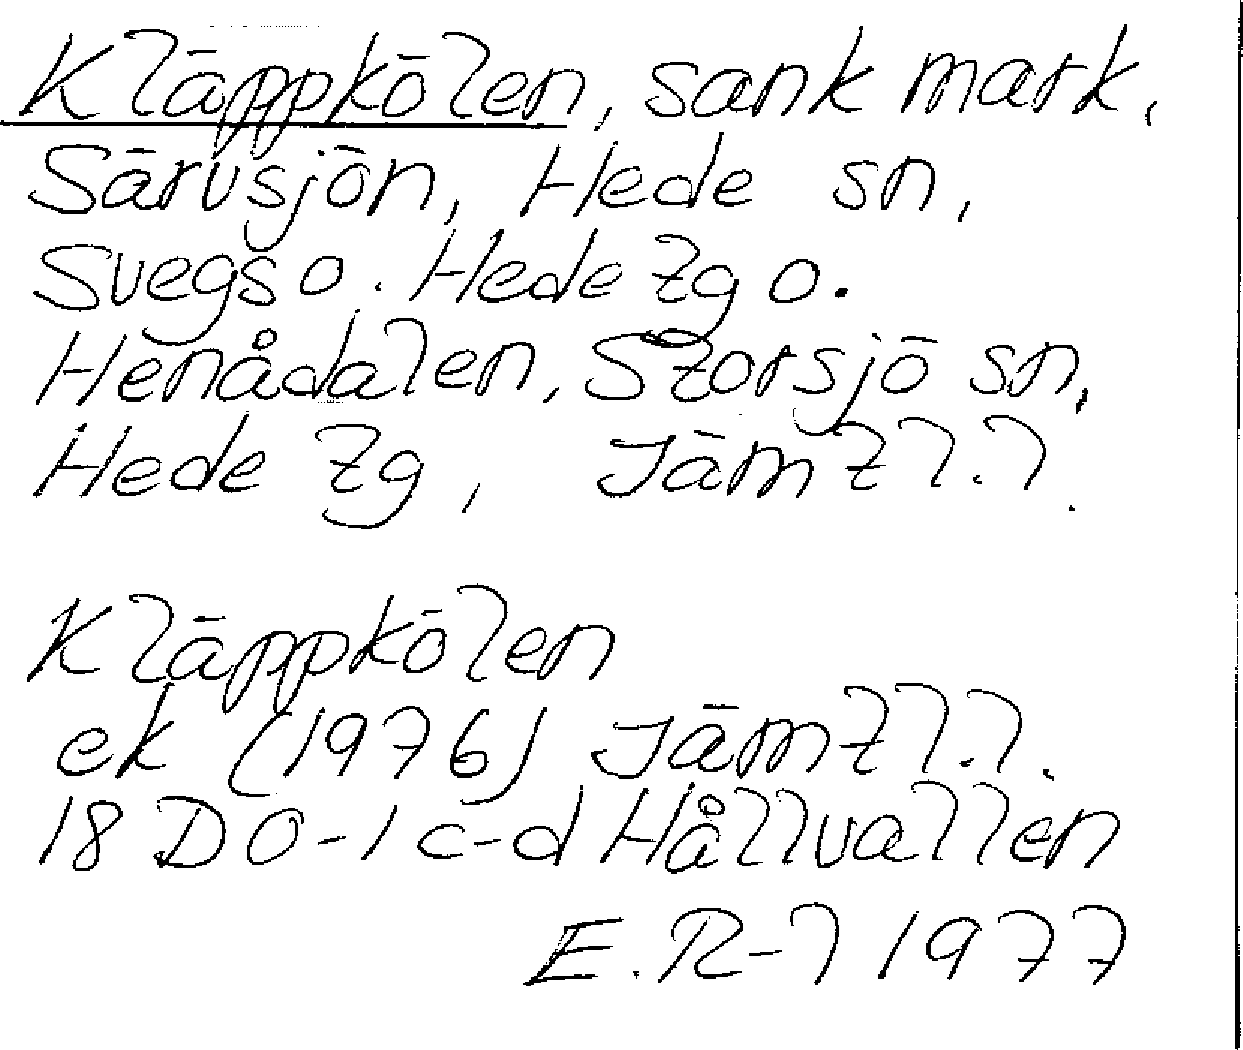 Kläppkölen, sank mark,
Särvsjön, Hede sn,
Svegs o. Hede tg o.
Henådalen, Storsjö sn,
Hede tg, Jämtl.l.
Kläppkölen
ek (1976) Jämtl.l.
18 D 0-1 c-d Hållvallen
E. R-l 1977